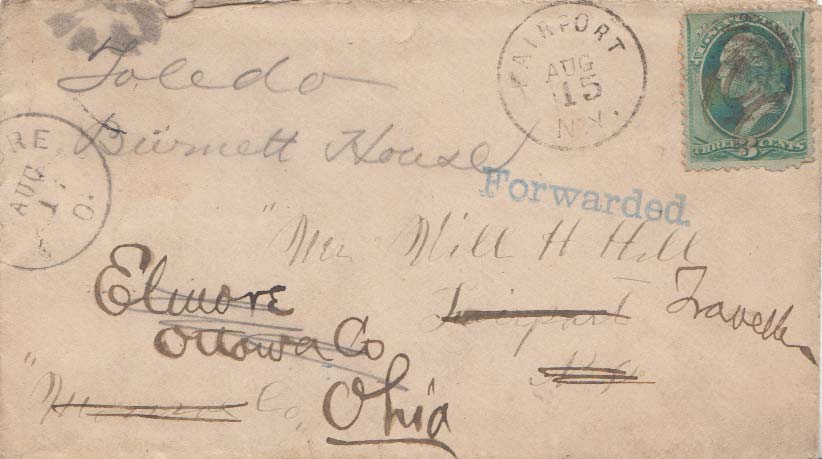 Toledo
Burnett House
FAIRPORT
AUG
15
N.Y.
THREE 3 CENTS
RE
AUG
1
O.
Forwarded
"Mr Will H Hill
Fairport
N.Y.
Traveller
Elmore
Ottowa Co
Co,
Ohio